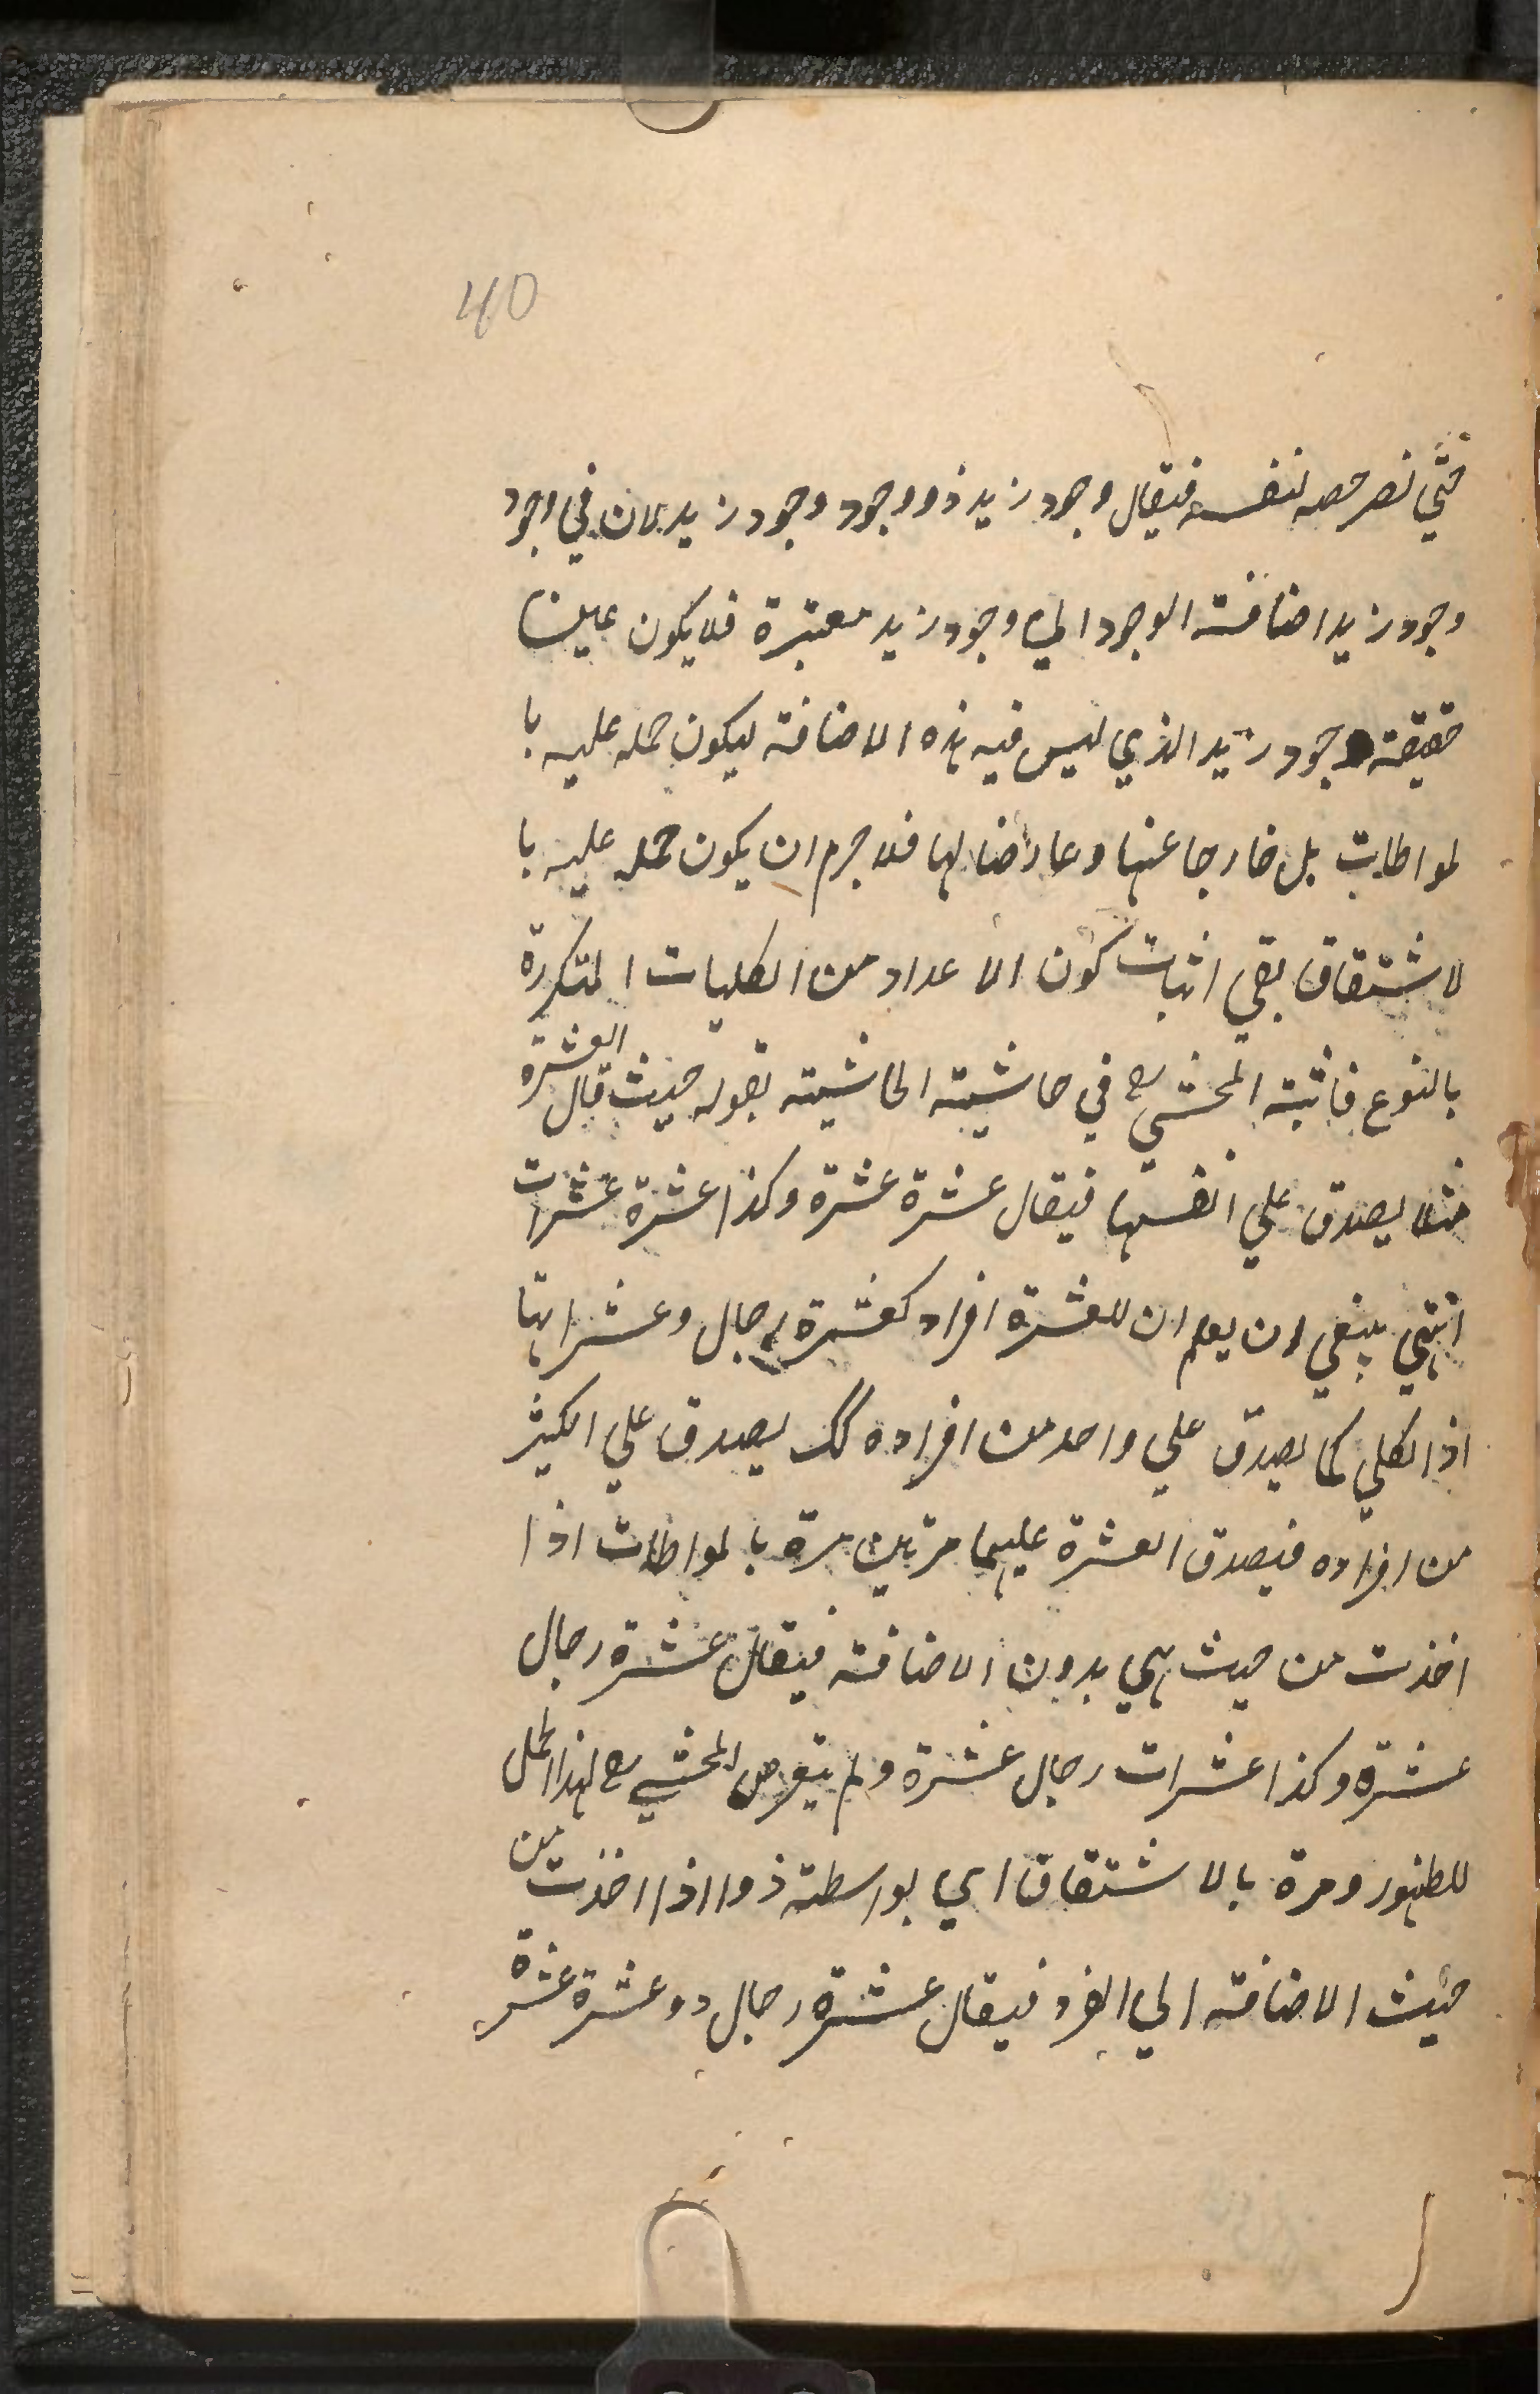 40
حتي تصر حصه لنفسه فيقال وجود زيد ذو وجود وجود زيد لان في وجود
وجود زيد اضافته الوجود الي وجود زيد معتبرة فلا يكون عين
حقيقة وجود زيد الذي ليس فيه هذه الاضافة ليكون حمله عليه با
لمواطات بل خارجا عنها وعارضا لها فلا جرم ان يكون حمله عليه با
لاشتقاق بقي اثبات كون الاعداد من الكليات المتكررة
بالنوع فاثبته المحشي رح في حاشيته الحاشيته بقوله حيث قال العشرة
مثلا يصدق علي انفسها فيقال عشرة عشرة وكذا عشرة عشرات
انتهي ينبغي ان يعلم ان للعشرة افراد كعشرة رجال وعشراتها
اذ الكلي كما يصدق علي واحد من افراده كك يصدق علي الكثير
من افراده فيصدق العشرة عليهما مرتين مرة بالمواطات اذا
اخذت من حيث هي بدون الاضافته فيقال عشرة رجال
عشرة وكذا عشرات رجال عشرة ولم يتعرض المحشي رح لهذا الحمل
للظهور ومرة بالاشتقاق اي بواسطته ذو اذا اخذت من
حيث الاضافته الي الفرد فيقال عشرة رجال ذو عشرة عشرة